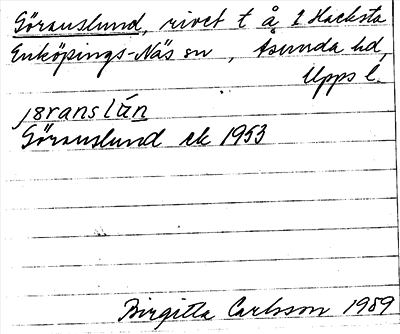 Göranslund, rivet t å 1 Hacksta
Enköpings-Näs sn, Åsunda hd,
Upps l.
jöranslún
Göranslund ek 1953
Birgitta Carlsson 1989